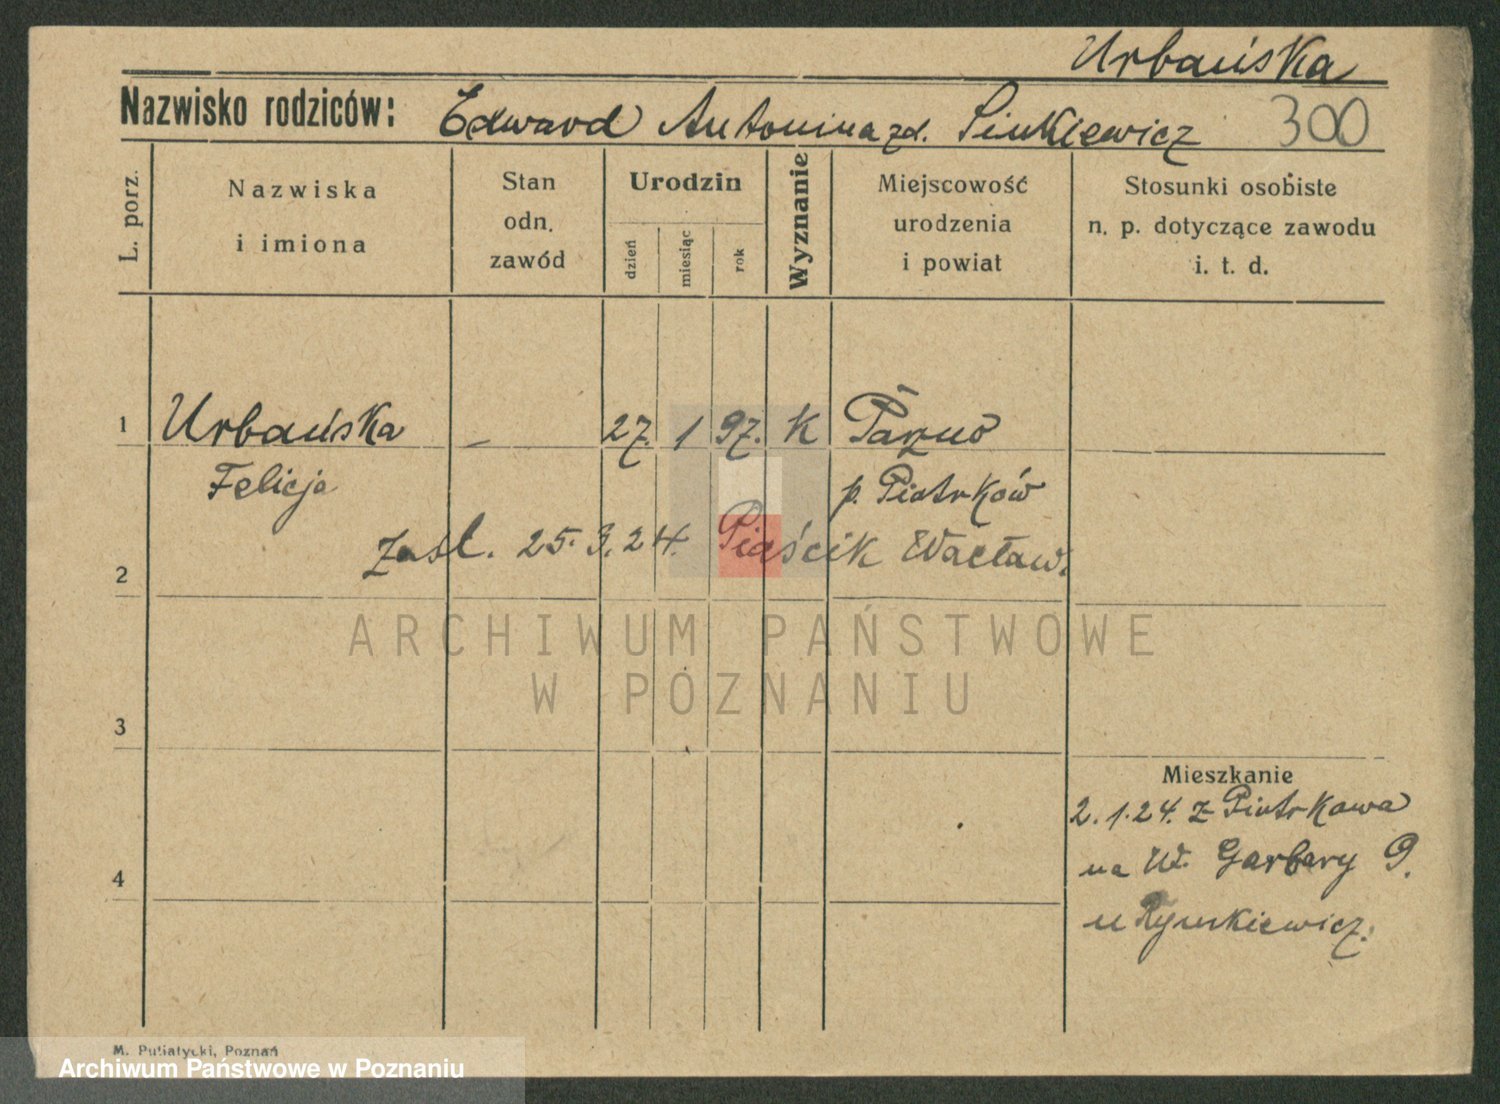 Urbańska
Nazwisko rodziców: Edward Antonina zd. Sinkiewicz 300
L. porz.
Nazwiska
i imiona
Stan
odn.
zawód
Urodzin
dzień
miesiąc
rok
Wyznanie
Miejscowość
urodzenia
i powiat
Stosunki osobiste
n. p. dotyczące zawodu
i. t. d.
1 Urbańska – 27. 1 97. K
Felicja p. Piotrków
zaśl. 25. 3. 24. Piaścik Wacław.
2
ARCHIWUM PAŃSTWOWE
W POZNANIU
3
Mieszkanie
2. 1. 24. z Piotrkowa
4
na W. Garbary 9.
u Rynkiewicz.
M. Putiatycki, Poznań
Archiwum Państwowe w Poznaniu